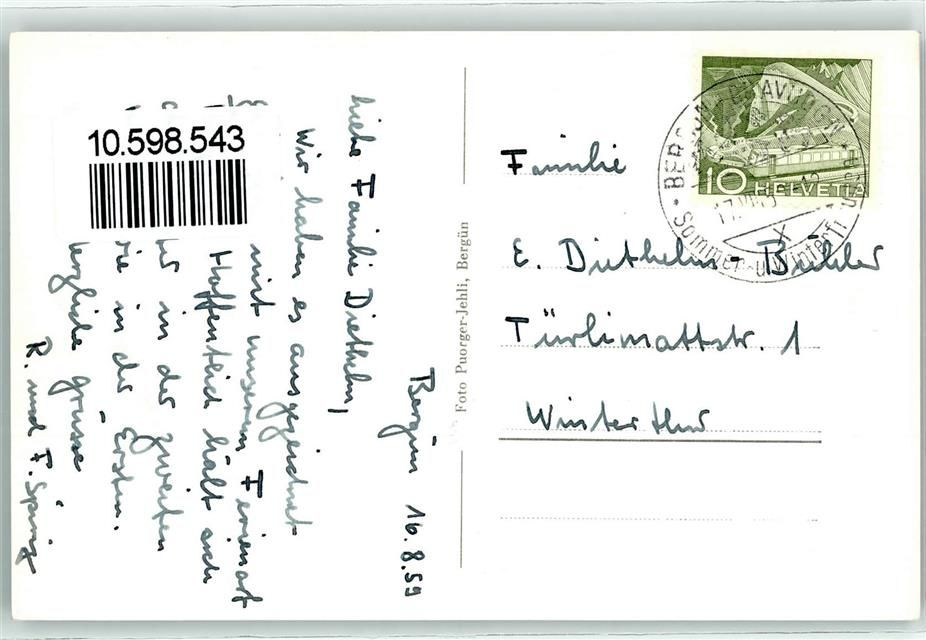 Bergün 16.8.59
Liebe Familie Diethelm,
Wir haben es ausgezeichnet
mit unserem Ferienort
Hoffentlich hält auch
in der zweiten
in der Ersten.
Grüsse
R. und F.
10.598.543
Foto Puorger-Jehli, Bergün
HELVETIA
10
BERGÜN
Sommer- u. Winter
Familie
E. Diethelm-Bühler
Türlimattstr. 1
Winterthur